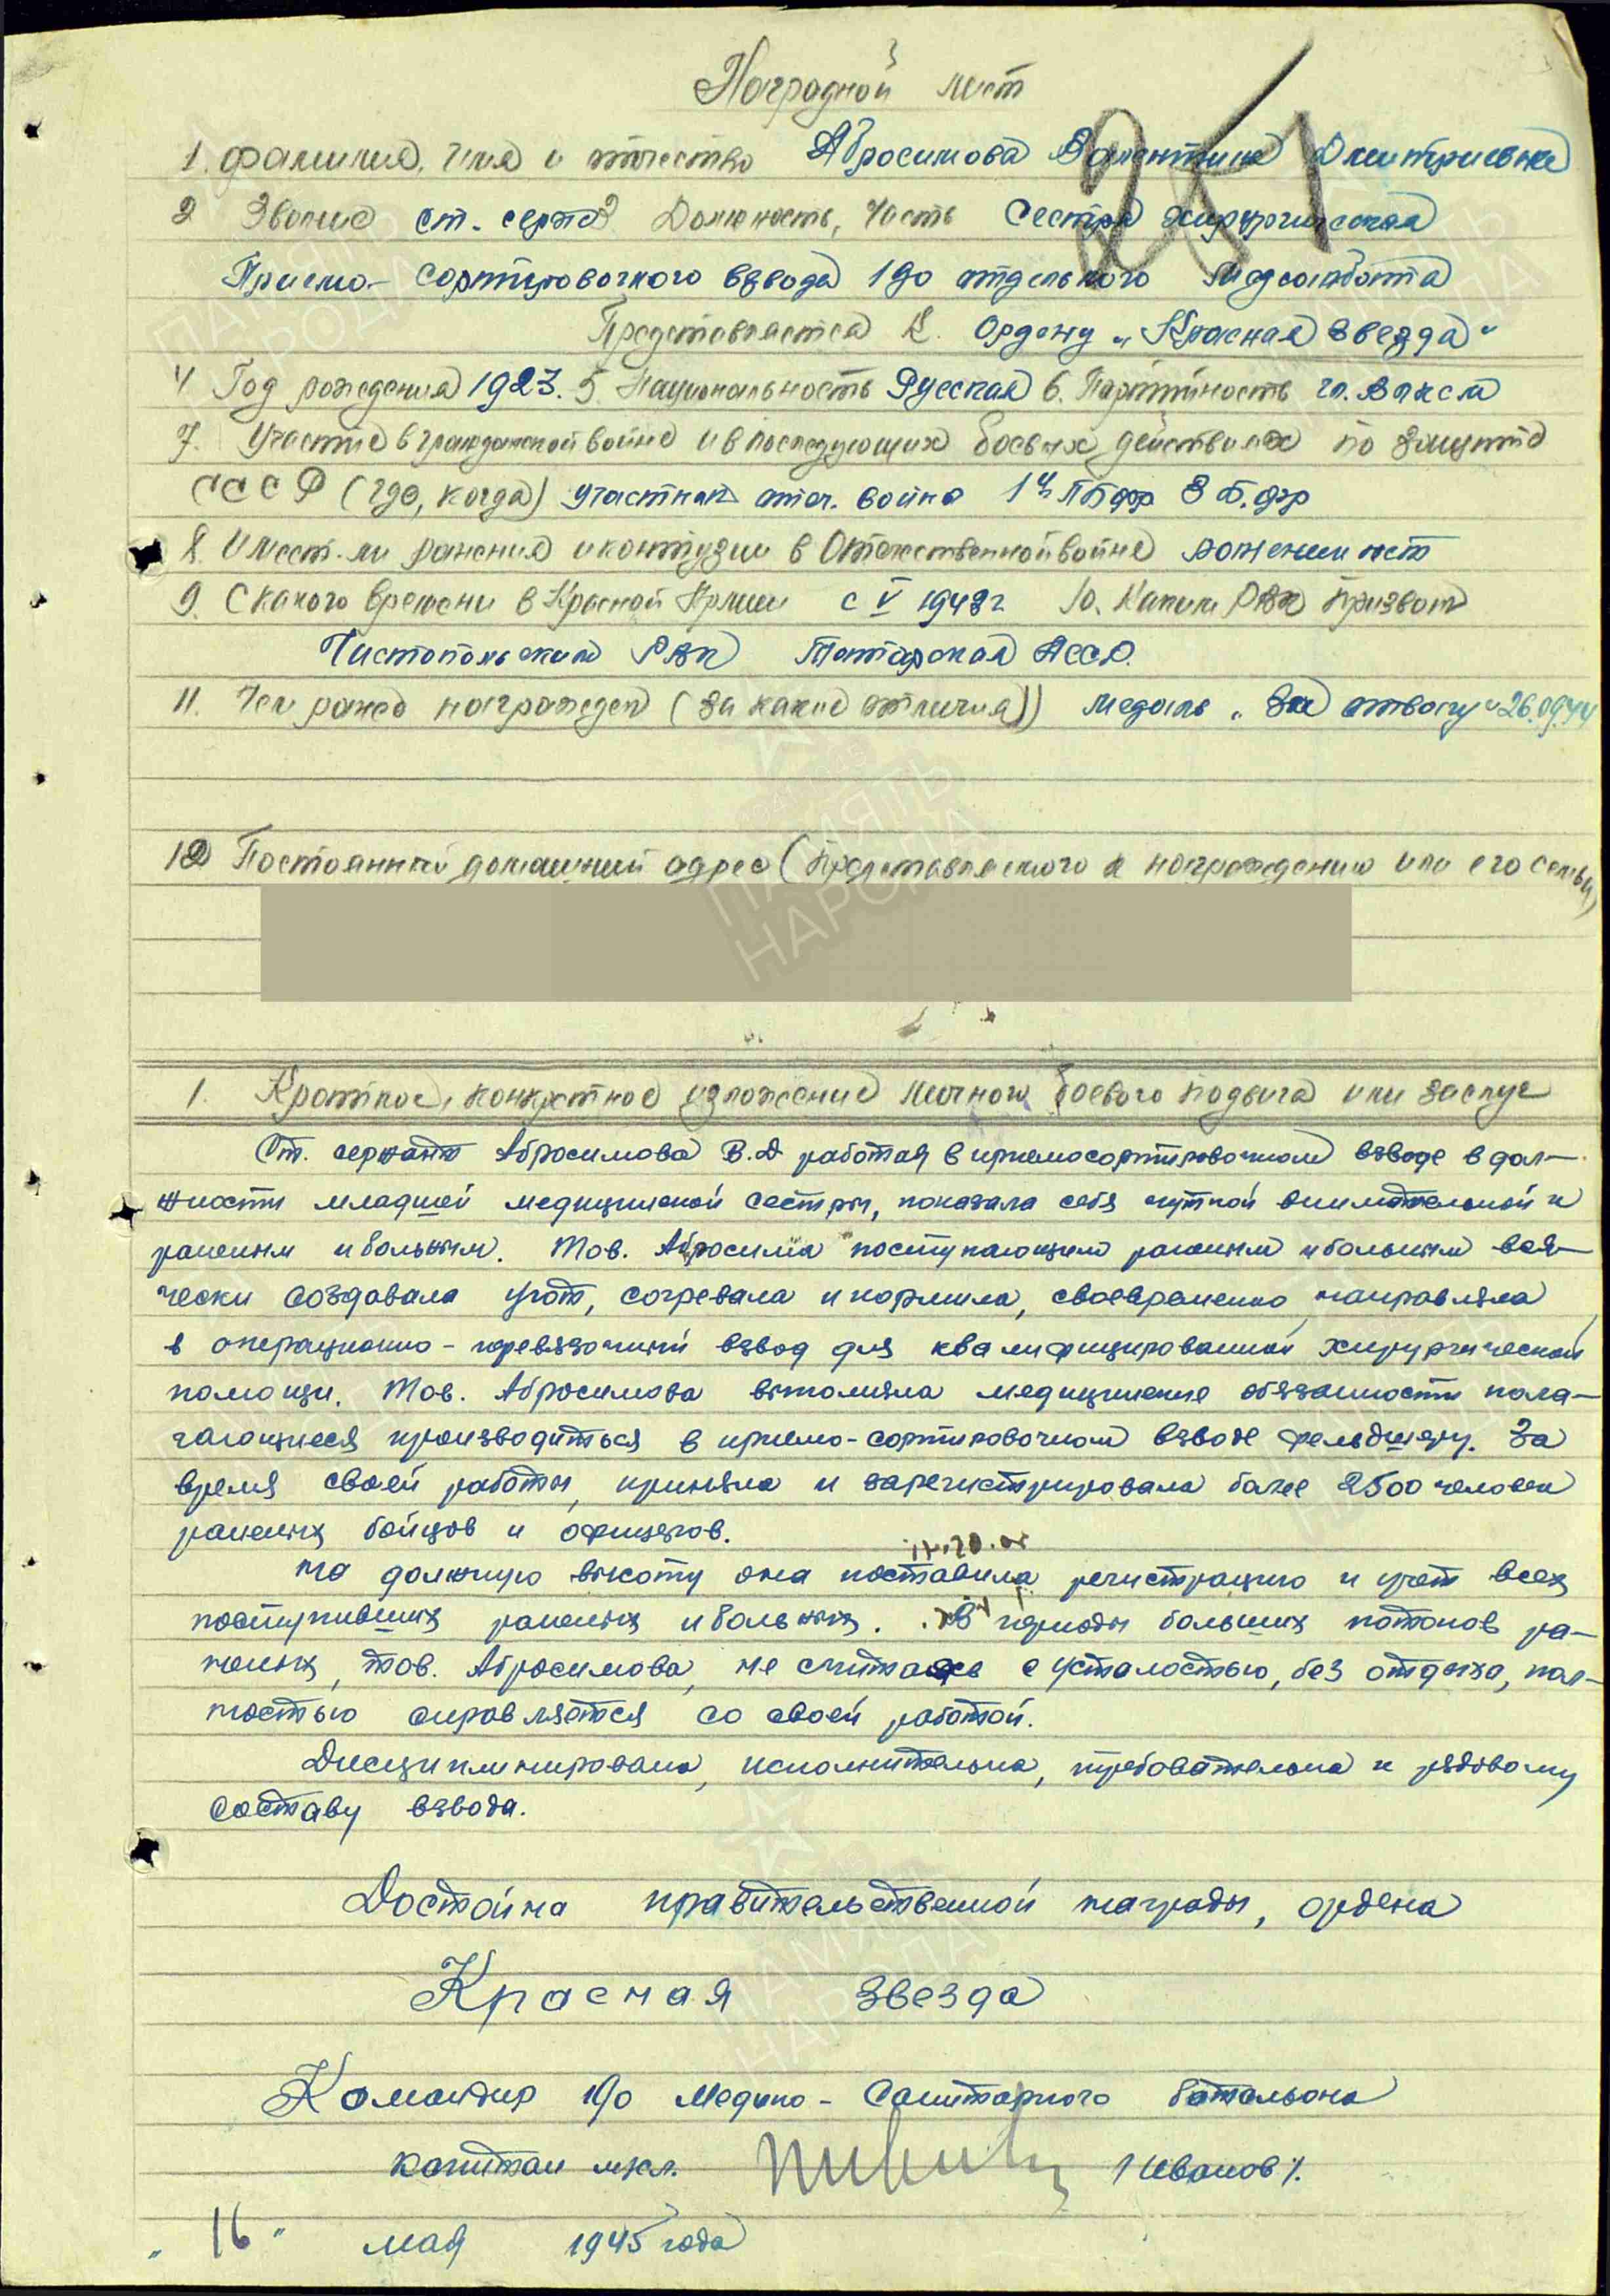 Наградной лист
251
1. Фамилия, имя и отчество Абросимова Валентина Дмитриевна
2 Звание ст. серж. Должность, часть Сестра хирургическая
Приемо-сортировочного взвода 190 отдельного Медсанбата
Представляется к. Ордену „Красная Звезда"
4 Год рождения 1923. 5. Национальность Русская 6. Партийность чл. ВЛКСМ
7. Участие в гражданской войне и в последующих боевых действиях по защите
СССР (где, когда) участник отеч. войны 1й ПБ фр 3 Б. фр
8. Имеет-ли ранения и контузии в Отечественной войне ранении нет
9. С какого времени в Красной Армии с V 1942 г 10. Каким РВК призван
Чистопольским РВК Татарская АССР.
11. Чем ранее награжден (за какие отличия) медаль „За отвагу" 26.09.44
12 Постоянный домашний адрес (представляемого к награждению или его семьи)
1. Краткое, конкретное изложение личного боевого подвига или заслуг
Ст. сержант Абросимова В.Д работая в приемосортировочном взводе в дол-
жности младшей медицинской сестры, показала себя чуткой внимательной к
раненым и больным. Тов. Абросима поступающим раненым и больным вся-
чески создавала уют, согревала и кормила, своевременно направляла
в операционно-перевязочный взвод для квалифицированной хирургической
помощи. Тов. Абросимова выполняла медицинские обязанности пола-
гающиеся производиться в приемо-сортировочном взводе фельдшеру. За
время своей работы, приняла и зарегистрировала более 2500 человек
раненых бойцов и офицеров.
На должную высоту она поставила регистрацию и учет всех
поступивших раненых и больных. В периоды больших потоков ра-
неных, тов. Абросимова, не считаясь с усталостью, без отдыха, пол-
ностью справляется со своей работой.
Дисциплинирована, исполнительна, требовательна к рядовому
составу взвода.
Достойна правительственной награды, ордена
Красная звезда
Командир 190 Медико-Санитарного батальона
капитан м/сл. /Иванов/.
„16" мая 1945 года